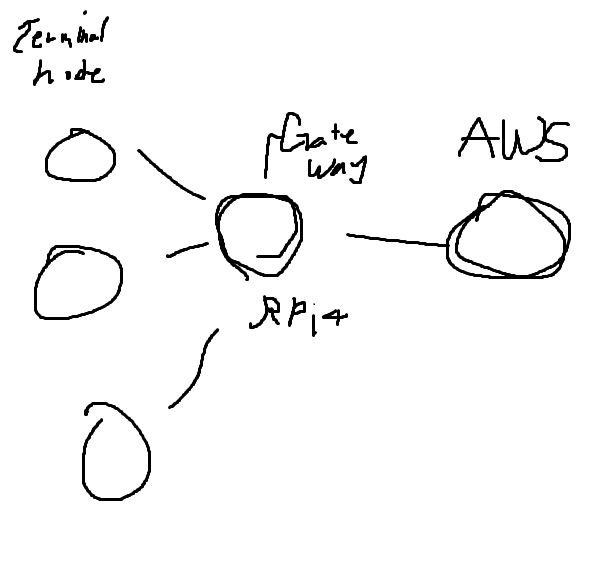 Terminal
node
Gate
way
AWS
RPi4